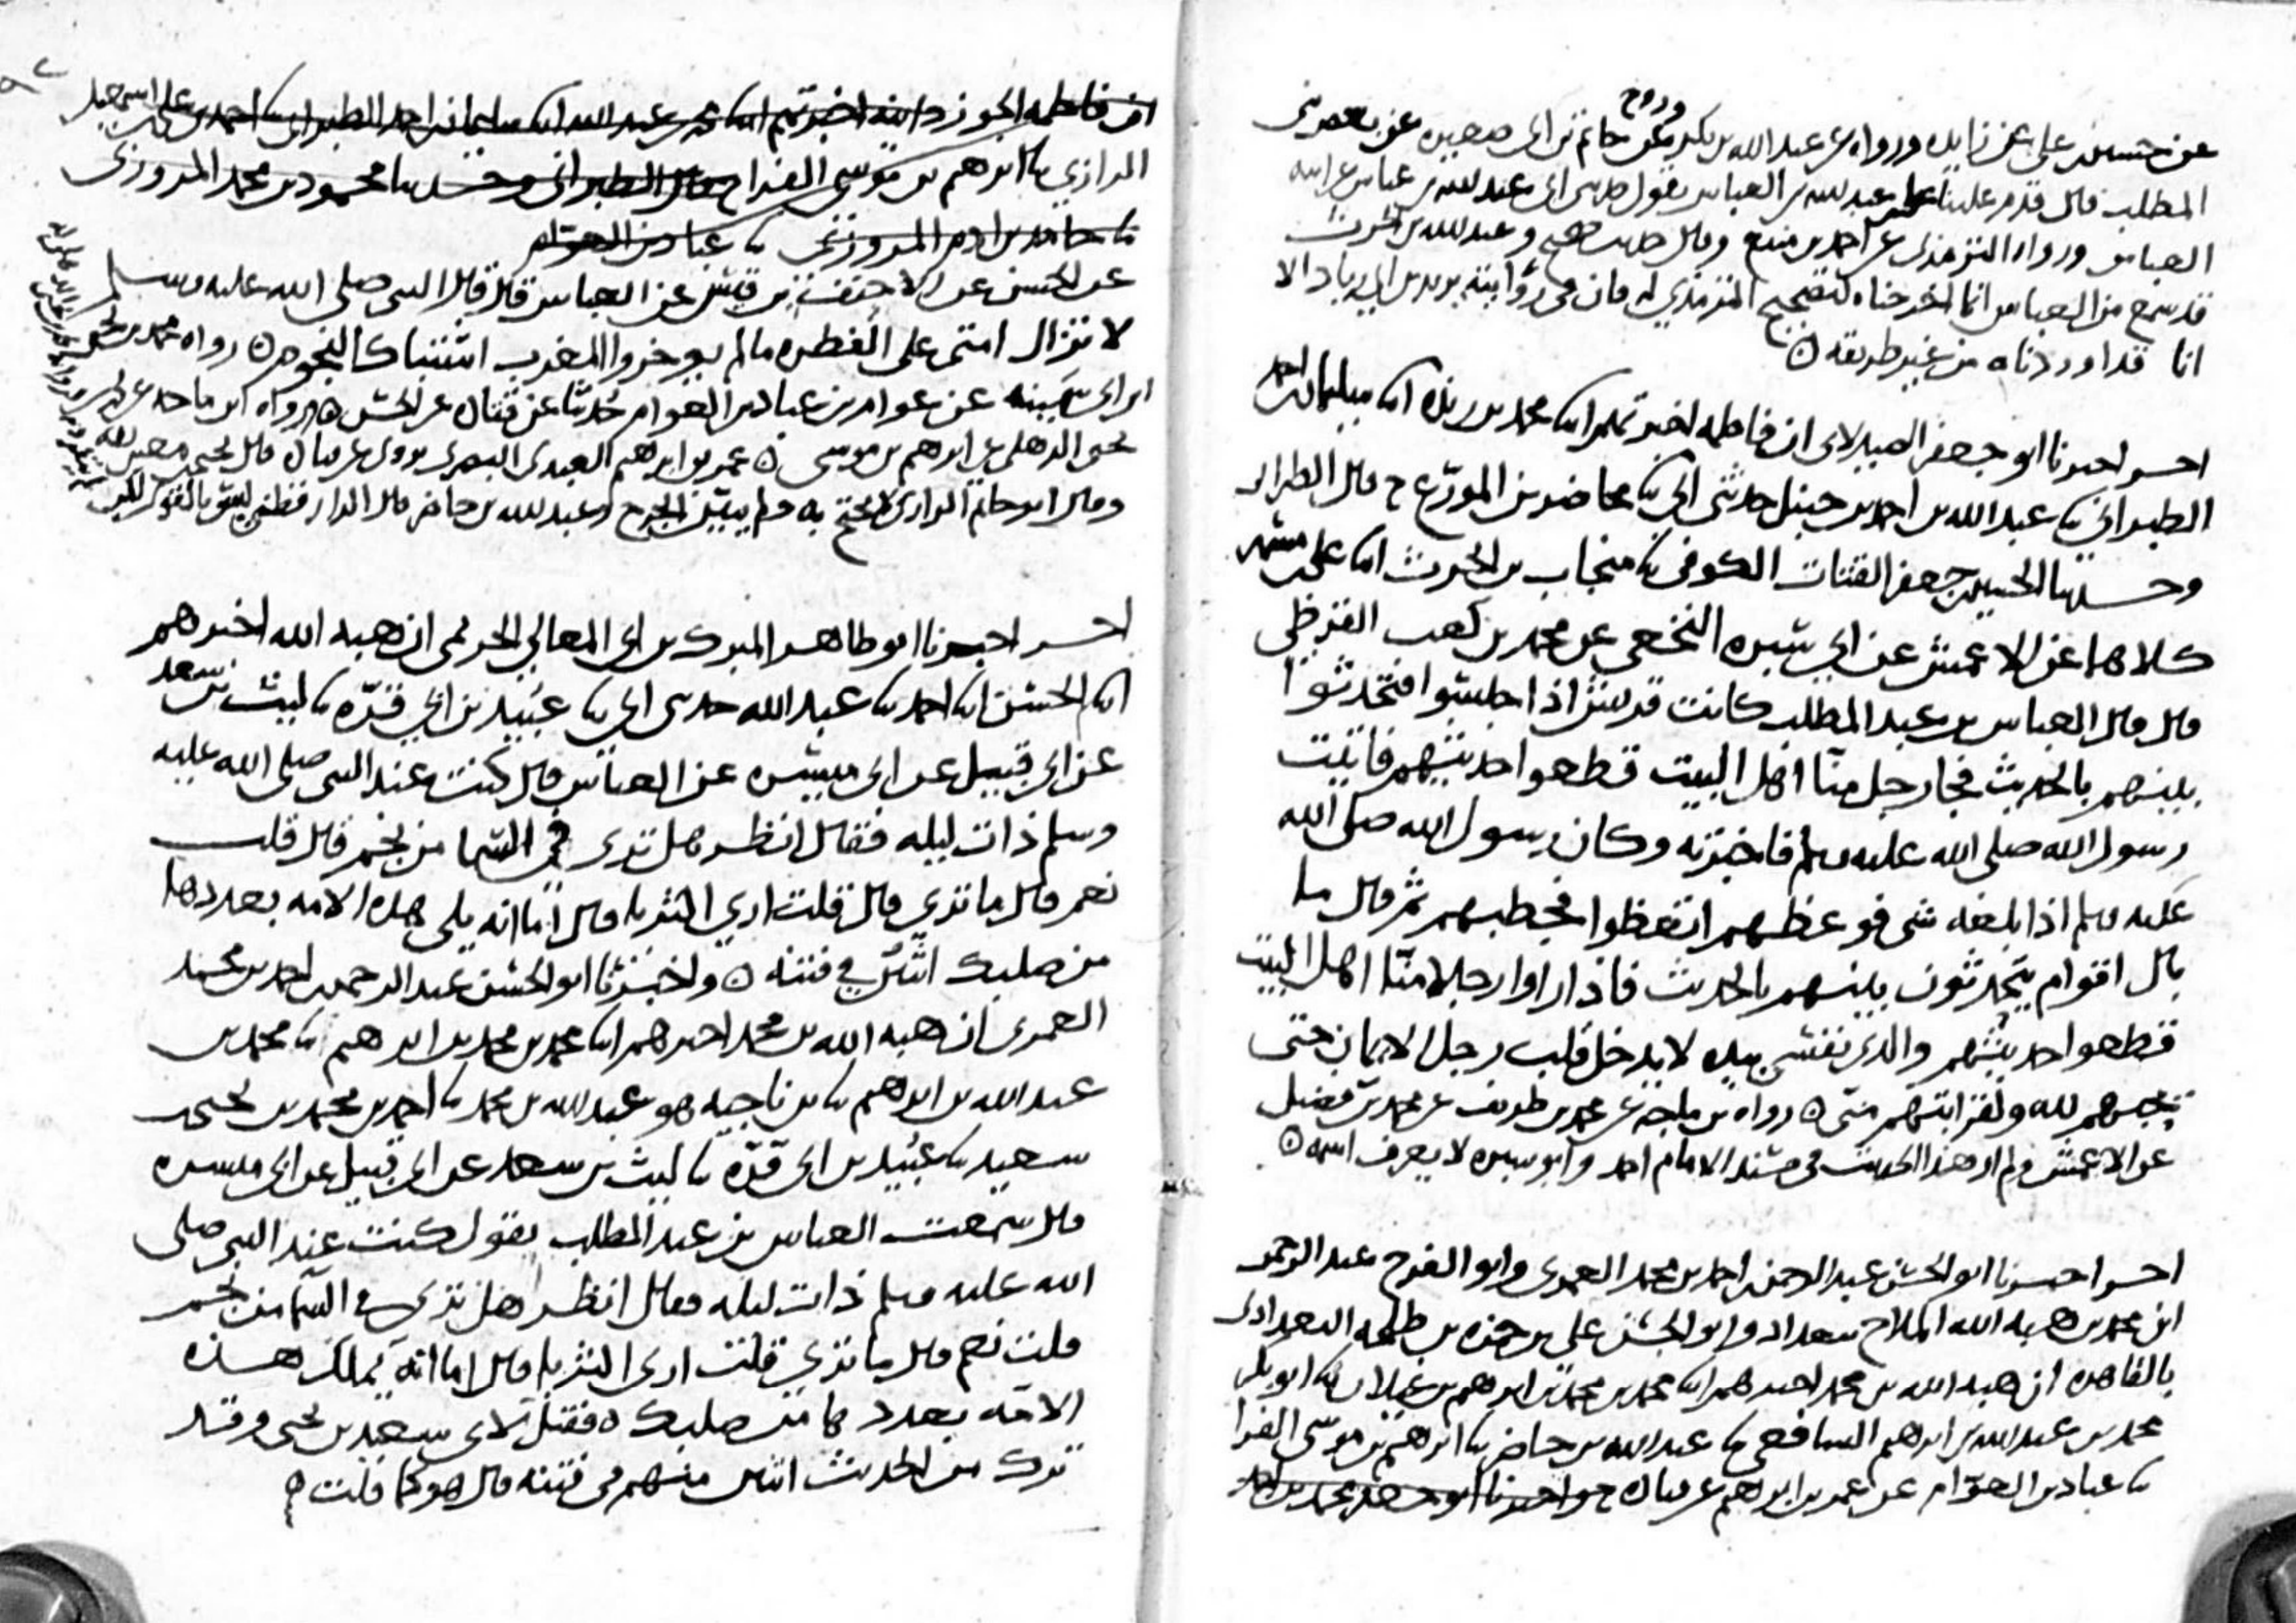 عن حسين بن علي عن زايده ورواه عن عبد الله بن بكر وروح حاتم بن ابي صغيره عن بعض بني
المطلب قال قدم علينا علي بن عبد الله بن العباس يقول حدثني ابي عبد الله بن عباس عن ابيه
العباس ورواه الترمذي عن احمد بن منيع وقال حديث صحيح وعبد الله بن الحرث
قد سمع من العباس انما اخرجناه لتصحيح الترمذي له فان في روايته يزيد بن ابي زياد الا
انا قد اوردناه من غير طريقه ه
اخبرنا ابو جعفر الصيدلاني ان فاطمه اخبرتهم ابنا محمد بن ريذه ابنا سليمان بن احمد
الطبراني نا عبد الله بن احمد بن حنبل حدثني ابي نا محاضر بن المورّع ح قال الطبراني
وحدثنا الحسين بن جعفر القتات الكوفي نا منجاب بن الحرث ابنا علي بن مسهر
كلاهما عن الاعمش عن ابي سبره النخعي عن محمد بن كعب القرظي
قال قال العباس بن عبد المطلب كانت قريش اذا جلسوا فتحدثوا
بينهم بالحديث فجا رجل منّا اهل البيت قطعوا حديثهم فاتيت
رسول الله صلى الله عليه وسلم فاخبرته وكان رسول الله صلى الله
عليه وسلم اذا بلغه شي فوعظهم اتعظوا فخطبهم ثم قال ما
بال اقوام يتحدثون بينهم بالحديث فاذا راوا رجلا منّا اهل البيت
قطعوا حديثهم والذي نفسي بيده لا يدخل قلب رجل الايمان حتى
يحبهم لله ولقرابتهم منّي ه رواه بن ماجه عن محمد بن طريف عن محمد بن فضيل
عن الاعمش ولم ار هذا الحديث في مسند الامام احمد وابو سبره لا يعرف اسمه ه
اخبرنا ابو الحسن عبد الرحمن بن احمد بن محمد العمري وابو الفرج عبد الرحمن
ابن محمد بن هبه الله الملاح ببغداد وابو الحسن علي بن حمزه بن طلحه البغدادي
بالقاهره ان هبه الله بن محمد اخبرهم ابنا محمد بن محمد بن ابرهيم بن غيلان نا ابو بكر
محمد بن عبد الله بن ابرهيم الشافعي نا عبد الله بن حاضر نا ابرهيم بن موسى الفرا
نا عباد بن العوّام عن عمر بن ابرهيم عن قتاده ح واخبرنا ابو جعفر محمد بن احمد
ان فاطمه الجوزدانيه اخبرتهم ابنا محمد بن عبد الله ابنا سليمان بن احمد الطبراني نا احمد بن علي بن اسمعيل
الرازي نا ابرهيم بن موسى الفرا ح قال الطبراني وحدثنا محمود بن محمد المروزي
نا حامد بن ادم المروزي نا عباد بن العوّام
عن الحسن عن الاحنف بن قيس عن العباس قال قال النبي صلى الله عليه وسلم
لا تزال امتي على الفطره مالم يوخروا المغرب اشتباك النجوم ه رواه محمد بن يحيى
ابن ابي سمينه عن عوام بن عباد بن العوام حُدثنا عن قتاده عن الحسن ه رواه ابن ماجه عن محمد بن
يحيى الذهلي عن ابرهيم بن موسى ه عمر بن ابرهيم العبدي البصري يروي عن قتاده قال يحيى بن معين ثقه
وقال ابو حاتم الرازي لا يحتج به ولم يبيّن الجرح وعبد الله بن حاضر قال الدارقطني ليس بالقوي
اخبرنا ابو طاهر المبرك بن ابي المعالي الحريمي ان هبه الله اخبرهم
ابنا الحسن ابنا احمد نا عبد الله حدثني ابي نا عُبيد بن ابي قرّه نا ليث بن سعد
عن ابي قبيل عن ابي ميسره عن العباس قال كنت عند النبي صلى الله عليه
وسلم ذات ليله فقال انظر هل ترى في السّما من نجم قال قلت
نعم قال ما ترى قال قلت ارى الثريا قال اما انه يلي هذه الامه بعددها
من صلبك اثنين في فتنه ه واخبرنا ابو الحسن عبد الرحمن بن احمد بن محمد
العمري ان هبه الله بن محمد اخبرهم ابنا محمد بن محمد بن ابرهيم نا محمد بن
عبد الله بن ابرهيم نا بن ناجيه هو عبد الله بن محمد نا احمد بن محمد بن يحيى بن
سعيد نا عُبيد بن ابي قرّه نا ليث بن سعد عن ابي قبيل عن ابي ميسره
قال سمعت العباس بن عبد المطلب يقول كنت عند النبي صلى
الله عليه وسلم ذات ليله فقال انظر هل ترى في السّما من نجم
قلت نعم قال ما ترى قلت ارى الثريا قال اما انه يملك هذه
الامّه بعددها من صلبك ه فقيل لابي سعيد بن يحيى وقد
ترك من الحديث اثنين منهم في فتنه قال هو كما قلت ه